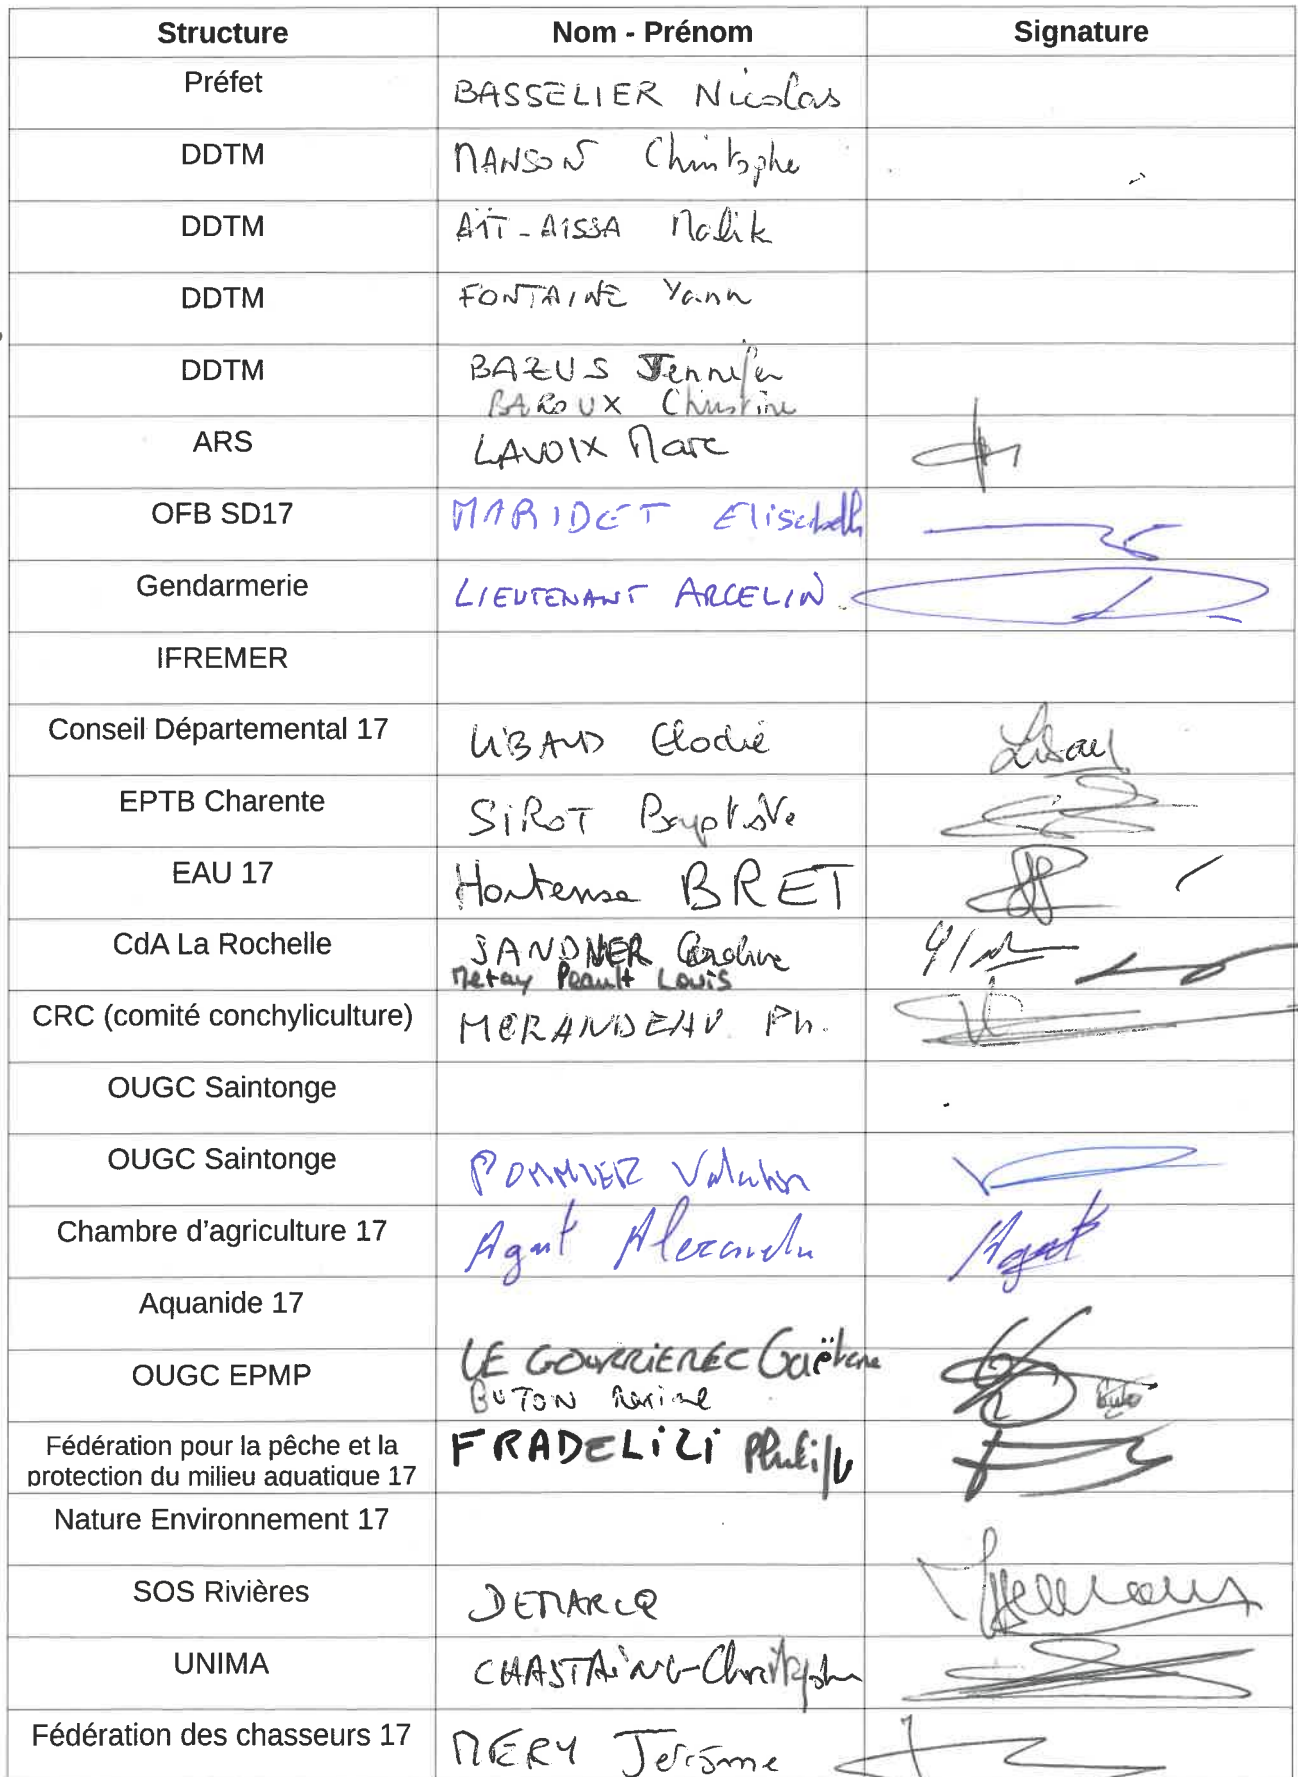 Structure Nom - Prénom Signature
Préfet BASSELIER Nicolas
DDTM MANSON Christophe
DDTM AÏT-AISSA Malik
DDTM FONTAINE Yann
DDTM BAZUS Jennifer
BAROUX Christine
ARS LAVOIX Marc
OFB SD17 MARIDET Elisabeth
Gendarmerie LIEUTENANT ARCELIN.
IFREMER
Conseil Départemental 17 LIBAUD Elodie
EPTB Charente SIROT Baptiste
EAU 17 Hortense BRET
CdA La Rochelle SANDNER Caroline
Metay Peault Louis
CRC (comité conchyliculture) MORANDEAU Ph.
OUGC Saintonge
OUGC Saintonge POMMIER Valentin
Chambre d'agriculture 17 Agat Alexandre Agat
Aquanide 17
OUGC EPMP LE GOURRIEREC Gaëtane
BUTON
Fédération pour la pêche et la
protection du milieu aquatique 17 FRADELIZI
Nature Environnement 17
SOS Rivières DEMARCQ
UNIMA CHASTAING Christophe
Fédération des chasseurs 17 MERY Jerôme